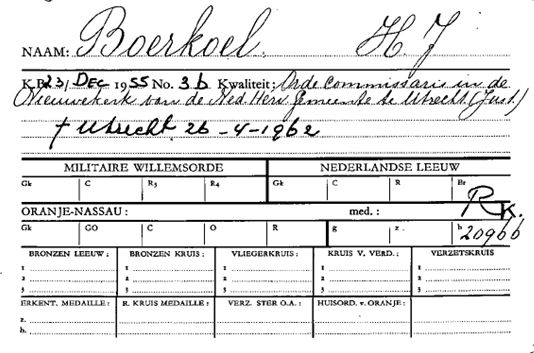 NAAM: Boerkoel. H. J
K.B. 23/ DEC 1955 No. 3b Kwaliteit: Orde Commissaris in de
Nieuwekerk van de Ned. Herv. Gemeente te Utrecht (Just.)
† Utrecht 26-4-1962
MILITAIRE WILLEMSORDE NEDERLANDSE LEEUW
Gk C R3 R4 Gk C R Br
R.K.
ORANJE-NASSAU: med.:
Gk GO C O R g z. b 20966
BRONZEN LEEUW: BRONZEN KRUIS: VLIEGERKRUIS: KRUIS V. VERD.: VERZETSKRUIS
1 1 1 1 1
2 2 2 2 2
3 3 3 3 3
ERKENT. MEDAILLE: R. KRUIS MEDAILLE: VERZ. STER O.A.: HUISORD. v. ORANJE:
z.
b.